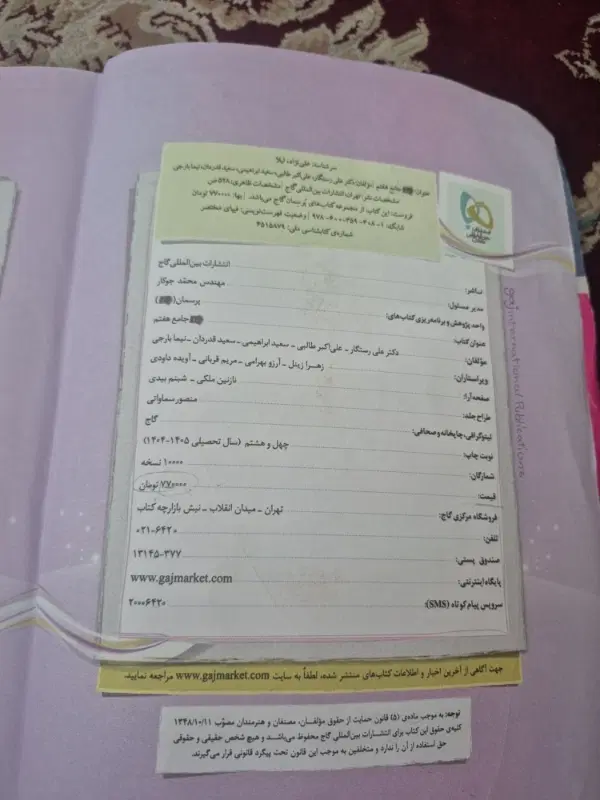 سرشناسه: علیزاده، لیلا
عنوان: جامع هفتم / مؤلفان: دکتر علی رستگار، علی‌اکبر طالبی، سعید ابراهیمی، سعید قدردان، نیما یارجی
مشخصات نشر: تهران، انتشارات بین‌المللی گاج / مشخصات ظاهری: ۵۲۸ ص
فروست: این کتاب، از مجموعه کتاب‌های پُرسمان گاج می‌باشد. / بها: ۷۷۰۰۰۰ تومان
شابک: ۱-۴۰۸-۳۵۹-۶۰۰-۹۷۸ / وضعیت فهرست‌نویسی: فیپای مختصر
شماره‌ی کتابشناسی ملی: ۴۵۱۵۸۷۹
ناشر: انتشارات بین‌المللی گاج
مدیر مسئول: مهندس محمّد جوکار
واحد پژوهش و برنامه‌ریزی کتاب‌های: پرسمان
عنوان کتاب: جامع هفتم
مؤلفان: دکتر علی رستگار ـ علی‌اکبر طالبی ـ سعید ابراهیمی ـ سعید قدردان ـ نیما یارجی
ویراستاران: زهرا زینل ـ آرزو بهرامی ـ مریم قربانی ـ آویده داودی
صفحه‌آرا: نازنین ملکی ـ شبنم بیدی
طراح جلد: منصور سماواتی
لیتوگرافی، چاپخانه و صحافی: گاج
نوبت چاپ: چهل و هشتم (سال تحصیلی ۱۴۰۵-۱۴۰۴)
شمارگان: ۱۰۰۰۰ نسخه
قیمت: ۷۷۰۰۰۰ تومان
فروشگاه مرکزی گاج: تهران ـ میدان انقلاب ـ نبش بازارچه کتاب
تلفن: ۰۲۱-۶۴۲۰
صندوق پستی: ۱۳۱۴۵-۳۷۷
پایگاه اینترنتی: www.gajmarket.com
سرویس پیام کوتاه (SMS): ۲۰۰۰۶۴۲۰
gaj international Publications
جهت آگاهی از آخرین اخبار و اطلاعات کتاب‌های منتشر شده، لطفاً به سایت www.gajmarket.com مراجعه نمایید.
توجه: به موجب ماده‌ی (۵) قانون حمایت از حقوق مؤلفـان، مصنفان و هنرمندان مصوّب ۱۳۴۸/۱۰/۱۱
کلیه‌ی حقوق این کتاب برای انتشـارات بین‌المللی گاج محفوظ می‌باشد و هیچ شخص حقیقی و حقوقی
حق استفاده از آن را ندارد و متخلفین به موجب این قانون تحت پیگرد قانونی قرار می‌گیرند.